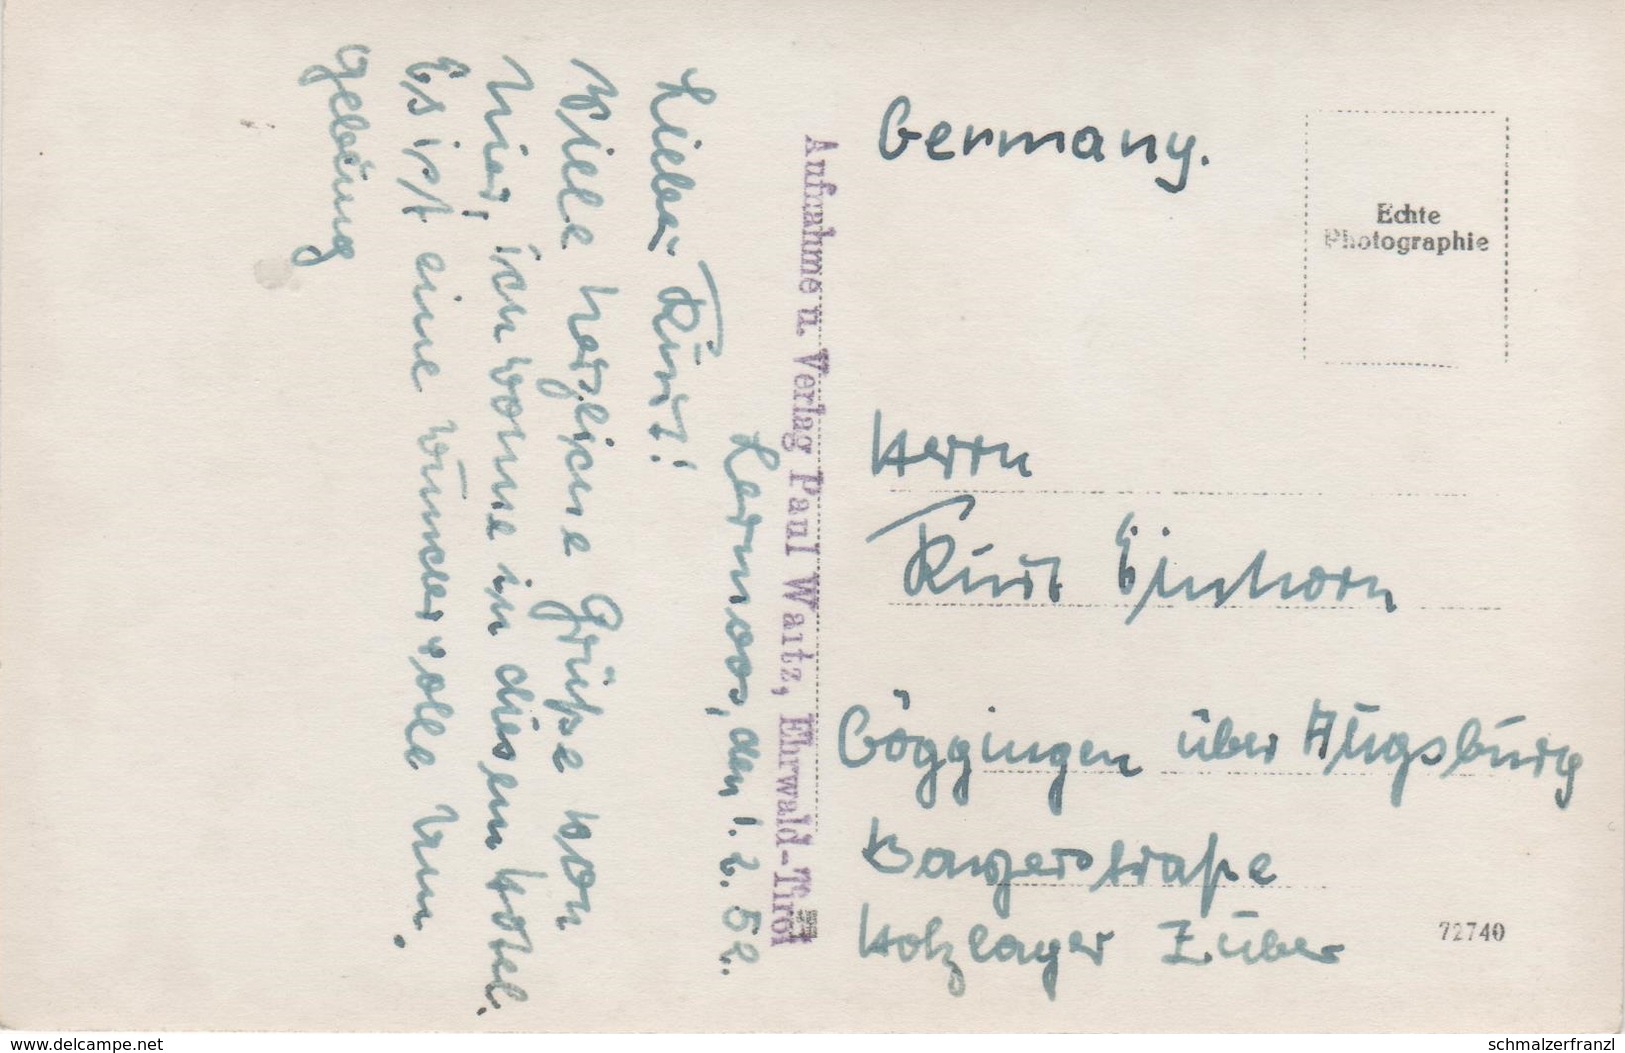 Lermoos, den 1.2.52.
Lieber Kurt!
Viele herzliche Grüße von
hier, ich wohne in diesem Hotel.
Es ist eine wundervolle Um.
gebung
Aufnahme u. Verlag Paul Waitz, Ehrwald-Tirol
Germany.
Echte
Photographie
Herrn
Kurt Einhorn
Göggingen über Augsburg
Bayerstraße
Holzlager Zuber
72740
www.delcampe.net
schmalzerfranzl